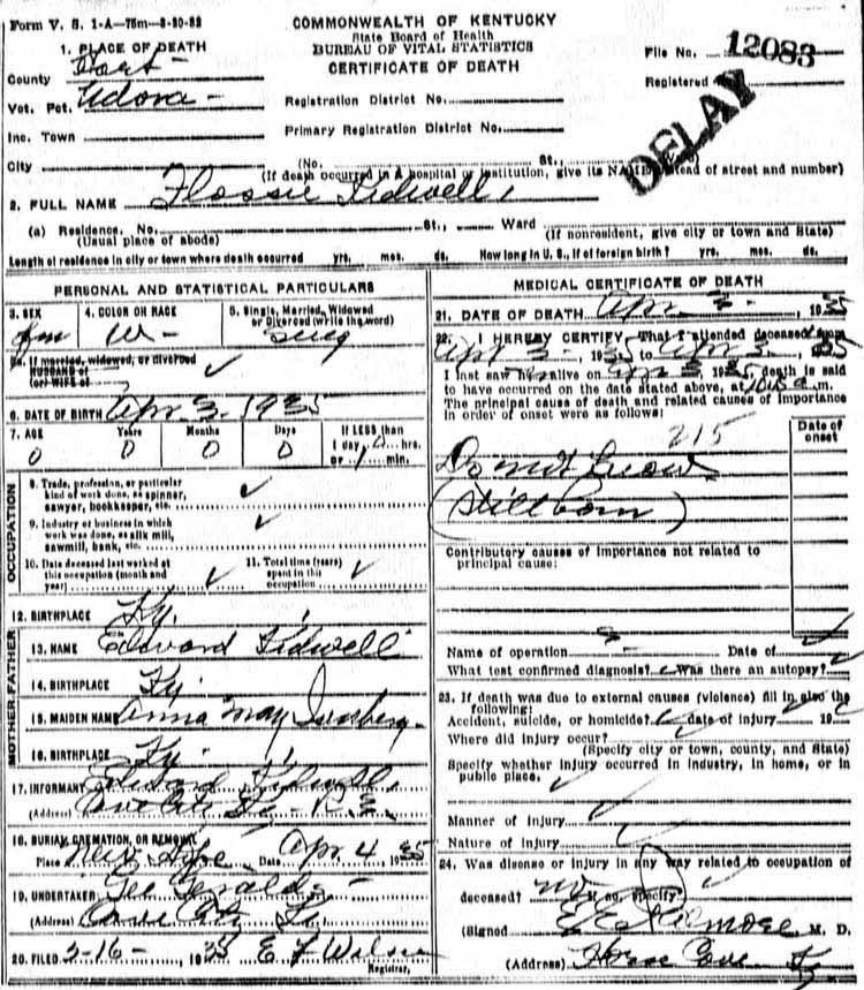 Form V. S. 1-A—75m—8-30-33
COMMONWEALTH OF KENTUCKY
State Board of Health
BUREAU OF VITAL STATISTICS
CERTIFICATE OF DEATH
File No. 12083
Registered
DELAY
1. PLACE OF DEATH
County Hart
Vot. Pct. Udora
Inc. Town
City
Registration District No.
Primary Registration District No.
(No. St.,
(If death occurred in a hospital or institution, give its NAME instead of street and number)
2. FULL NAME Flossie Kidwell
(a) Residence. No. St., Ward
(Usual place of abode) (If nonresident, give city or town and State)
Length of residence in city or town where death occurred yrs. mos. ds. How long in U. S., if of foreign birth? yrs. mos. ds.
PERSONAL AND STATISTICAL PARTICULARS
3. SEX
4. COLOR OR RACE W-
5. Single, Married, Widowed
or Divorced (write the word)
Sing
5a. If married, widowed, or divorced
HUSBAND of
(or) WIFE of
6. DATE OF BIRTH Apr. 3. 1935
7. AGE Years Months Days If LESS than
0 0 0 0 1 day, 0 hrs.
or 1 min.
OCCUPATION
8. Trade, profession, or particular
kind of work done, as spinner,
sawyer, bookkeeper, etc.
9. Industry or business in which
work was done, as silk mill,
sawmill, bank, etc.
10. Date deceased last worked at
this occupation (month and
year)
11. Total time (years)
spent in this
occupation
12. BIRTHPLACE Ky.
FATHER
13. NAME Edward Kidwell
14. BIRTHPLACE Ky.
MOTHER
15. MAIDEN NAME Anna May
16. BIRTHPLACE Ky.
17. INFORMANT Edward Kidwell
(Address) Cave City Ky - R.
18. BURIAL, CREMATION, OR REMOVAL
Place Hope Date Apr 4 1935
19. UNDERTAKER Geralds
(Address) Cave City Ky
20. FILED 1935 E F Wilson
Registrar.
MEDICAL CERTIFICATE OF DEATH
21. DATE OF DEATH Apr. 3 - , 1935
22. I HEREBY CERTIFY, That I attended deceased from
Apr 3 - , 1935 to Apr 3 , 1935
I last saw h alive on Apr 3, 1935, death is said
to have occurred on the date stated above, at m.
The principal cause of death and related causes of importance
in order of onset were as follows:
Date of
onset
215
Do not know
(Stillborn)
Contributory causes of importance not related to
principal cause:
Name of operation Date of
What test confirmed diagnosis? Was there an autopsy?
23. If death was due to external causes (violence) fill in also the
following:
Accident, suicide, or homicide? date of injury 19
Where did injury occur?
(Specify city or town, county, and State)
Specify whether injury occurred in industry, in home, or in
public place.
Manner of injury
Nature of injury
24. Was disease or injury in any way related to occupation of
deceased? no If so, specify
(Signed M. D.
(Address) Horse Cave Ky